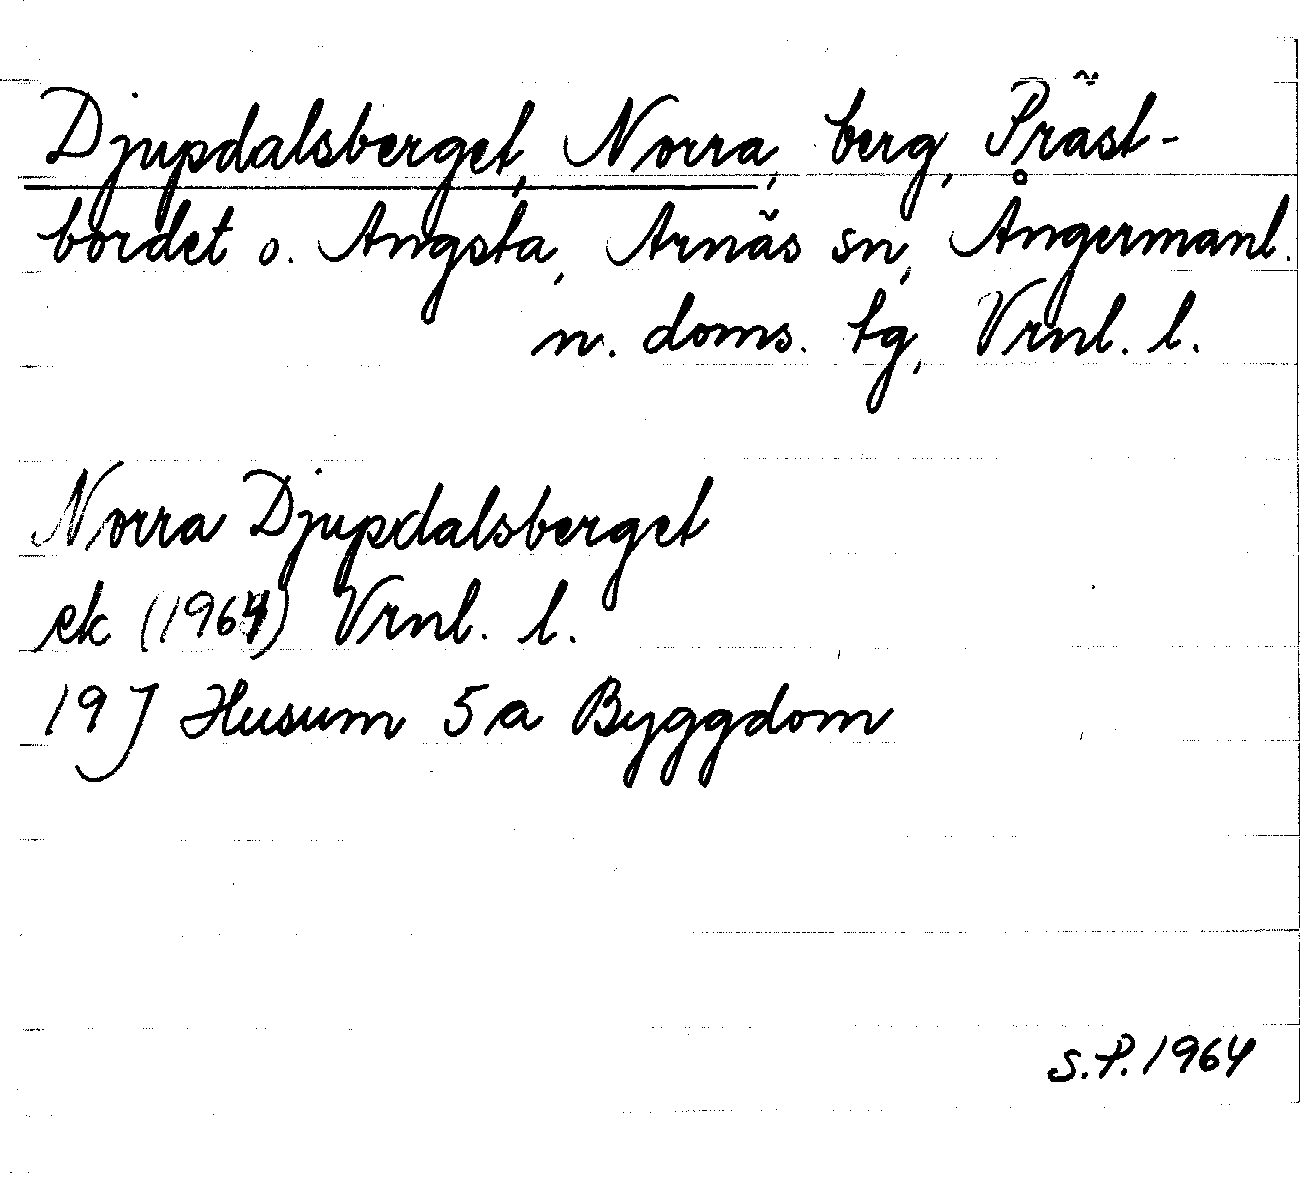 Djupdalsberget, Norra, berg, Präst-
bordet o. Ängsta, Arnäs sn, Ångermanl.
n. doms. tg, Vrnl. l.
Norra Djupdalsberget
ek (1964) Vrnl. l.
19J Husum 5a Byggdom
S.P. 1964